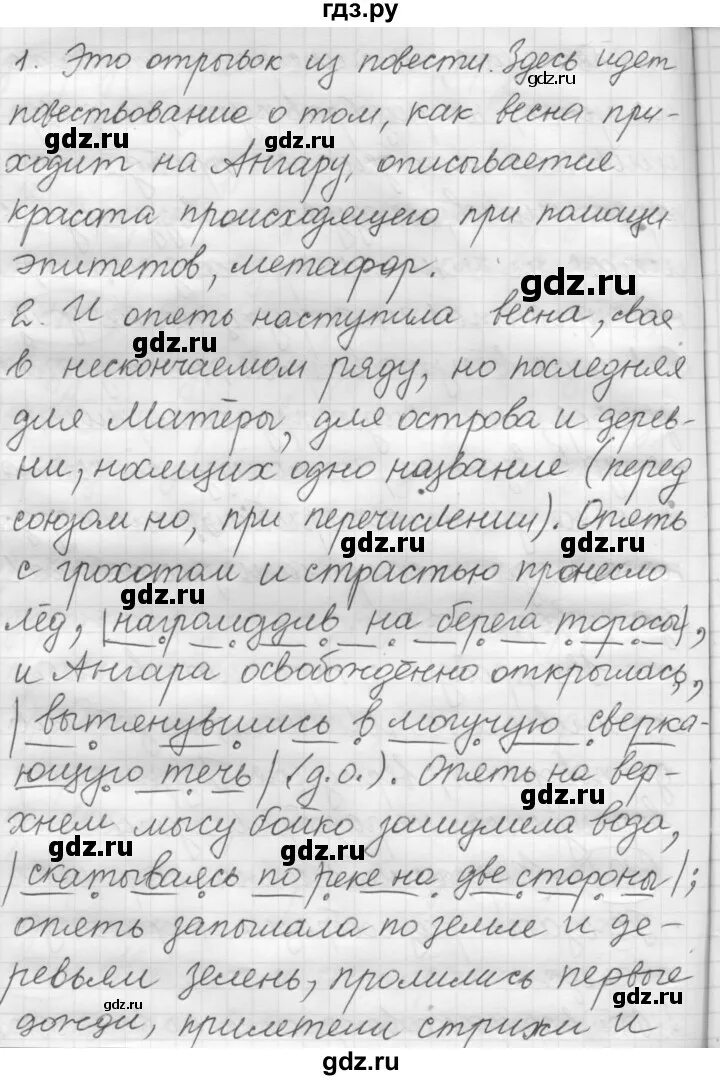 гдз.ру
1. Это отрывок из повести. Здесь идет
gdz.ru
повествование о том, как весна при-
gdz.ru gdz.ru
ходит на Ангару, описывается
красота происходящего при помощи
эпитетов, метафор.
gdz.ru
2. И опять наступила весна, своя
gdz.ru
в нескончаемом ряду, но последняя
для Матёры, для острова и дерев-
ни, носящих одно название (перед
союзом но, при перечислении). Опять
gdz.ru gdz.ru
с грохотом и страстью пронесло
gdz.ru
лёд, |нагромоздив на берега торосы|,
и Ангара освобождённо открылась,
|вытянувшись в могучую сверка-
ющую течь| (д.о.). Опять на вер-
gdz.ru gdz.ru
хнем мысу бойко зашумела вода,
gdz.ru gdz.ru
|скатываясь по реке на две стороны|;
опять запылала по земле и де-
ревьям зелень, пролились первые
gdz.ru gdz.ru
дожди, прилетели стрижи и
gdz.ru